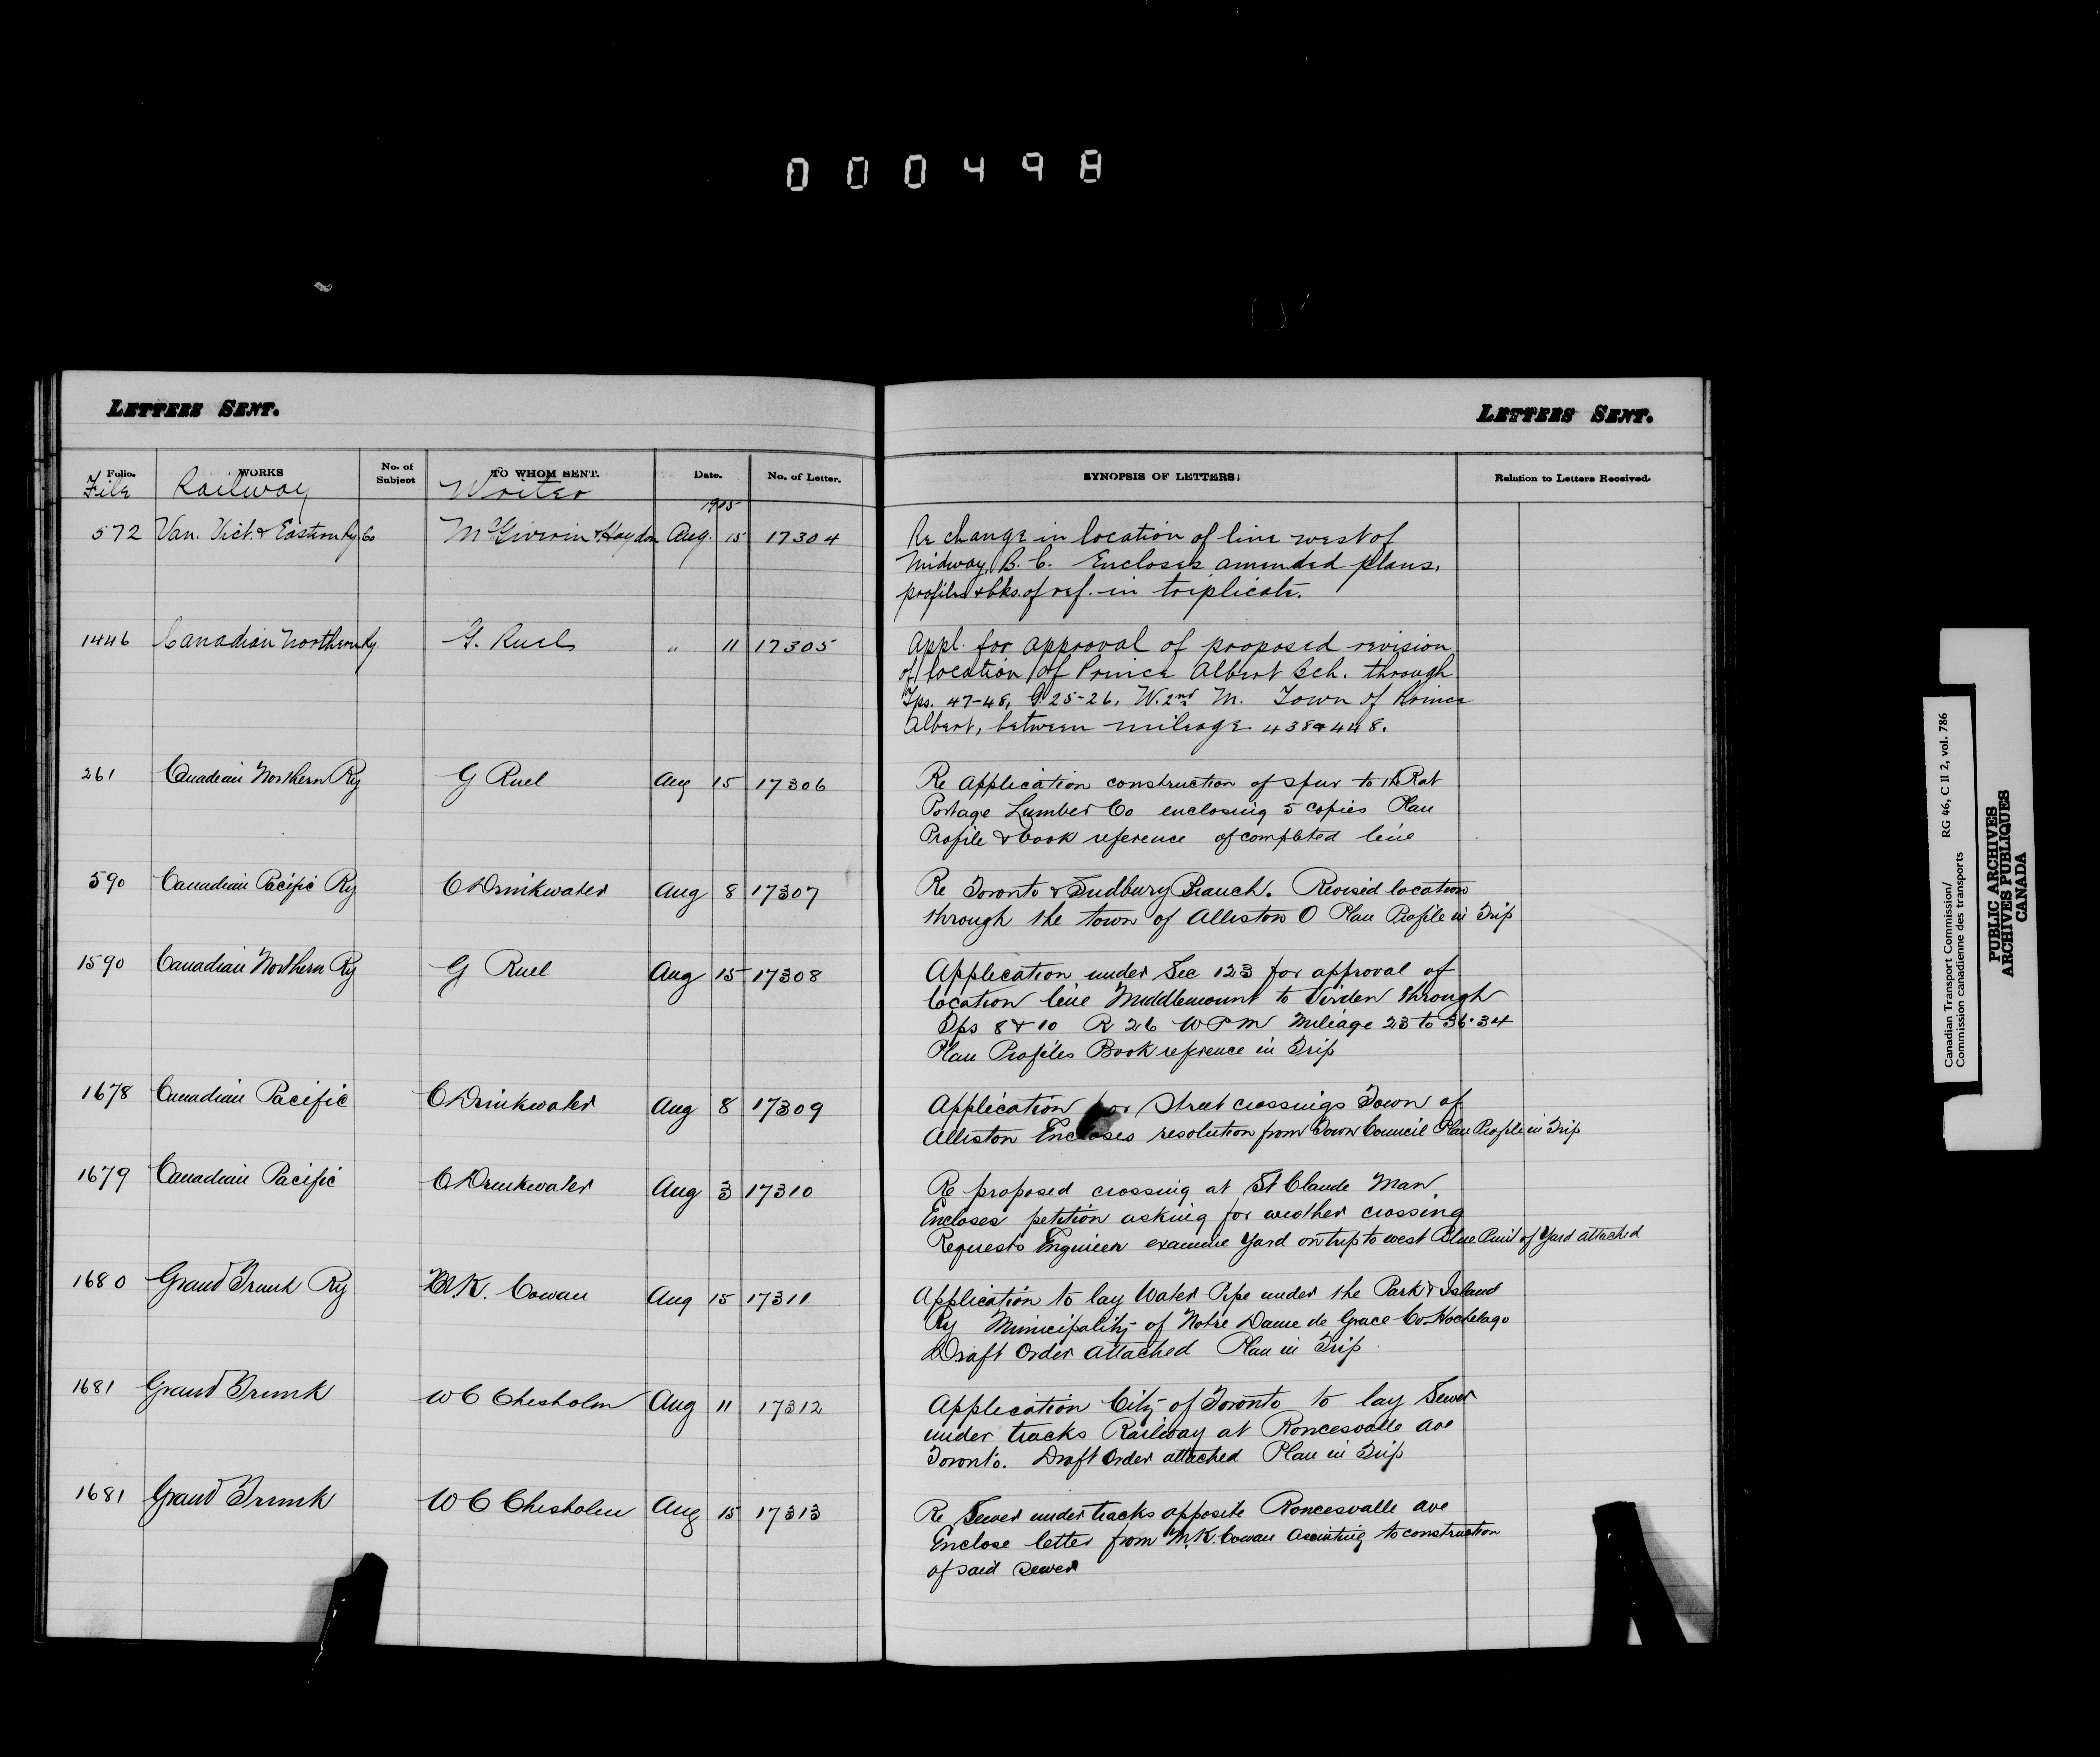 000498
LETTERS SENT.
LETTERS SENT.
Folio. WORKS No. of Subject TO WHOM SENT. Date. No. of Letter. SYNOPSIS OF LETTERS: Relation to Letters Received.
File Railway Writer
1905
572 Van. Vict. & Eastern Ry Co McGiverin & Haydon Aug. 15 17304 Re change in location of line west of
Midway, B. C. Encloses amended plans,
profiles & bks. of ref. in triplicate.
1446 Canadian Northern Ry. G. Ruel " 11 17305 Appl. for approval of proposed revision
of location of Prince Albert Bch. through
Tps. 47-48, R. 25-26, W. 2nd M. Town of Prince
Albert, between mileage 438 & 448.
261 Canadian Northern Ry G Ruel Aug 15 17306 Re Application construction of spur to the Rat
Portage Lumber Co enclosing 5 copies Plan
Profile & book reference of completed line
590 Canadian Pacific Ry C Drinkwater Aug 8 17307 Re Toronto & Sudbury Branch. Revised location
through the town of Alliston O Plan Profile in Trip
1590 Canadian Northern Ry G Ruel Aug 15 17308 Application under Sec 123 for approval of
location line Middlemount to Virden through
Tps 8 & 10 R 26 W P M Mileage 23 to 36.34
Plan Profiles Book refrence in Trip
1678 Canadian Pacific C Drinkwater Aug 8 17309 Application for Street crossings Town of
Alliston Encloses resolution from Town Council Plan Profile in Trip
1679 Canadian Pacific C Drinkwater Aug 3 17310 Re proposed crossing at St Claude Man.
Encloses petition asking for another crossing
Requests Engineer examine Yard on trip to west Blue Print of Yard attached
1680 Grand Trunk Ry M.K. Cowan Aug 15 17311 Application to lay Water Pipe under the Park & Island
Ry Municipality of Notre Dame de Grace Co. Hochelaga
Draft Order attached Plan in Trip
1681 Grand Trunk W C Chisholm Aug 11 17312 Application City of Toronto to lay Sewer
under tracks Railway at Roncesvalle Ave
Toronto. Draft Order attached Plan in Trip
1681 Grand Trunk W C Chisholm Aug 15 17313 Re Sewer under tracks opposite Roncesvalle Ave
Enclose letter from M.K. Cowan to construction
of said Sewer
Canadian Transport Commission/ RG 46, C II 2, vol. 786
Commission canadienne des transports
PUBLIC ARCHIVES
ARCHIVES PUBLIQUES
CANADA